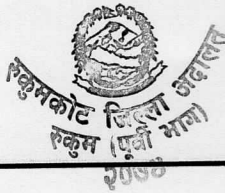 रुकुमकोट जिल्ला अदालत
रुकुम (पूर्वी भाग)
२०७४